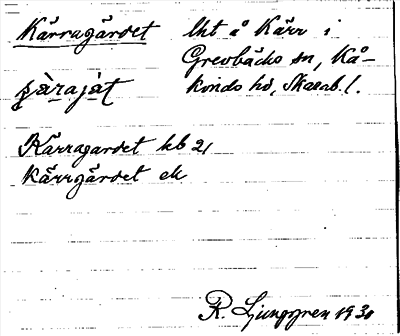 Kärragärdet
Uht å Kärr i
Grevbäcks sn, Kå-
kinds hd, Skarab. l.
Kärragardet kb 21
Kärrgärdet ek
R. Ljunggren 1930